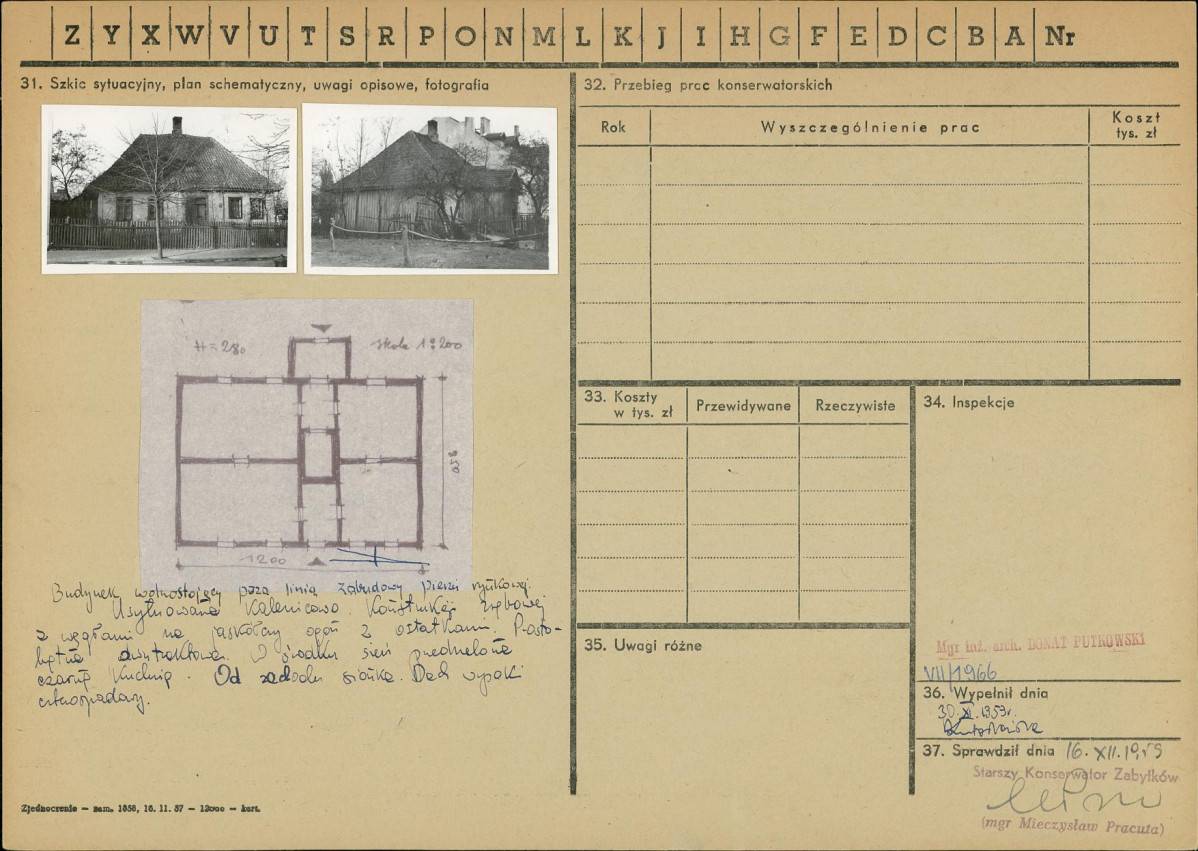 Z Y X W V U T S R P O N M L K J I H G F E D C B A Nr
31. Szkic sytuacyjny, plan schematyczny, uwagi opisowe, fotografia
H = 280
skala 1:200
850
1200
Budynek wolnostojący poza linią zabudowy pierzei rynkowej.
Usytuowana kalenicowo. Konstrukcji zrębowej
z węgłami na jaskółczy ogon z ostatkami. P-osto-
kątna dwutraktowa. W środku sień przedzielona
czarną kuchnią. Od zachodu sionka. Dach wysoki
czterospadowy.
Zjednoczenie — zam. 1858, 16. 11. 57 — 12000 — kart.
32. Przebieg prac konserwatorskich
Rok
Wyszczególnienie prac
Koszt
tys. zł
33. Koszty
w tys. zł
Przewidywane
Rzeczywiste
34. Inspekcje
Mgr inż. arch. DONAT PUTKOWSKI
VII/1966
35. Uwagi różne
36. Wypełnił dnia
30.XI.1959r.
37. Sprawdził dnia 16.XII.1959
Starszy Konserwator Zabytków
(mgr Mieczysław Pracuta)